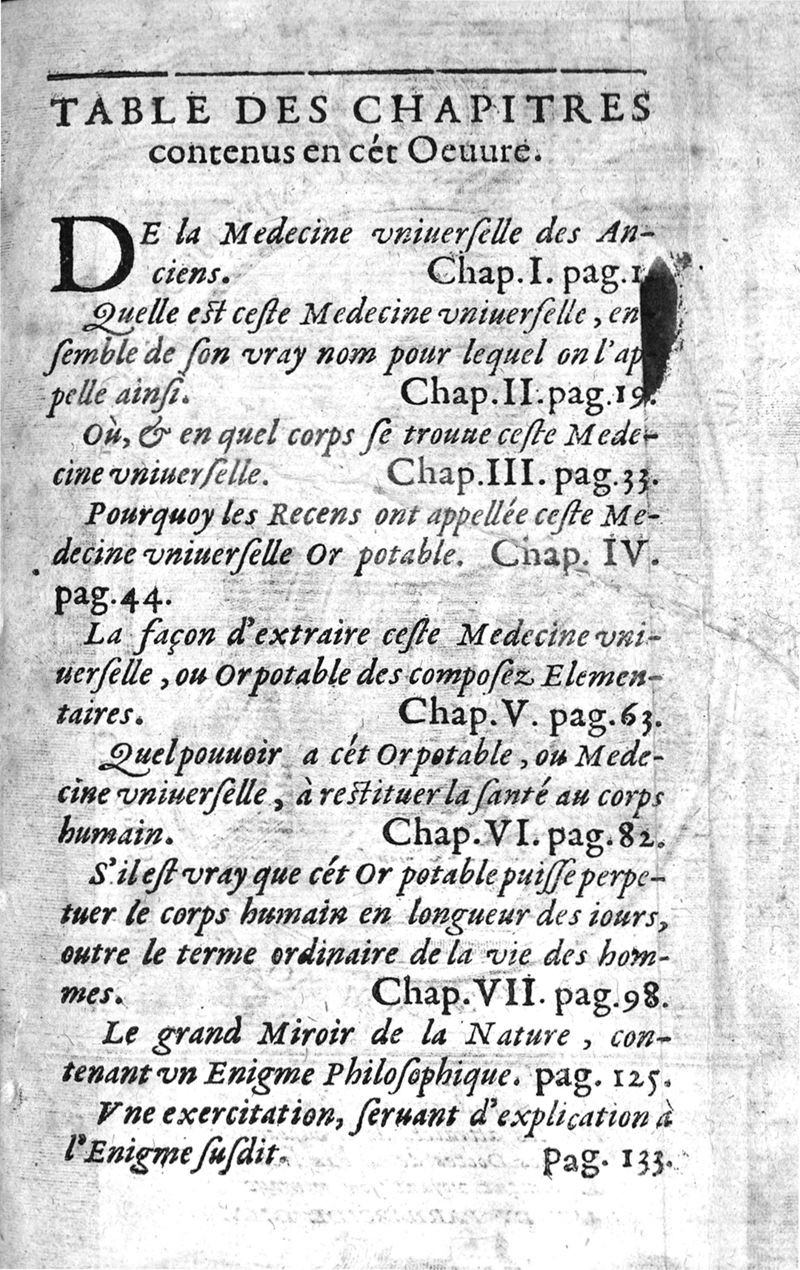 TABLE DES CHAPITRES
contenus en cét Oeuure.
DE la Medecine vniuerſelle des An-
ciens. Chap.I. pag.1
Quelle est ceſte Medecine vniuerſelle, en
ſemble de ſon vray nom pour lequel on l'ap
pelle ainſi. Chap.II.pag.19.
Où, & en quel corps ſe trouue ceſte Mede-
cine vniuerſelle. Chap.III. pag.33.
Pourquoy les Recens ont appellée ceſte Me-
decine vniuerſelle Or potable. Chap. IV.
pag.44.
La façon d'extraire ceſte Medecine vni-
uerſelle, ou Or potable des compoſez Elemen-
taires. Chap.V. pag.63.
Quel pouuoir a cét Or potable, ou Mede-
cine vniuerſelle, à restituer la ſanté au corps
humain. Chap.VI. pag.82.
S'il eſt vray que cét Or potable puiſſe perpe-
tuer le corps humain en longueur des iours,
outre le terme ordinaire de la vie des hom-
mes. Chap.VII. pag.98.
Le grand Miroir de la Nature, con-
tenant vn Enigme Philoſophique. pag. 125.
Vne exercitation, ſeruant d'explication à
l'Enigme ſuſdit. pag. 133.